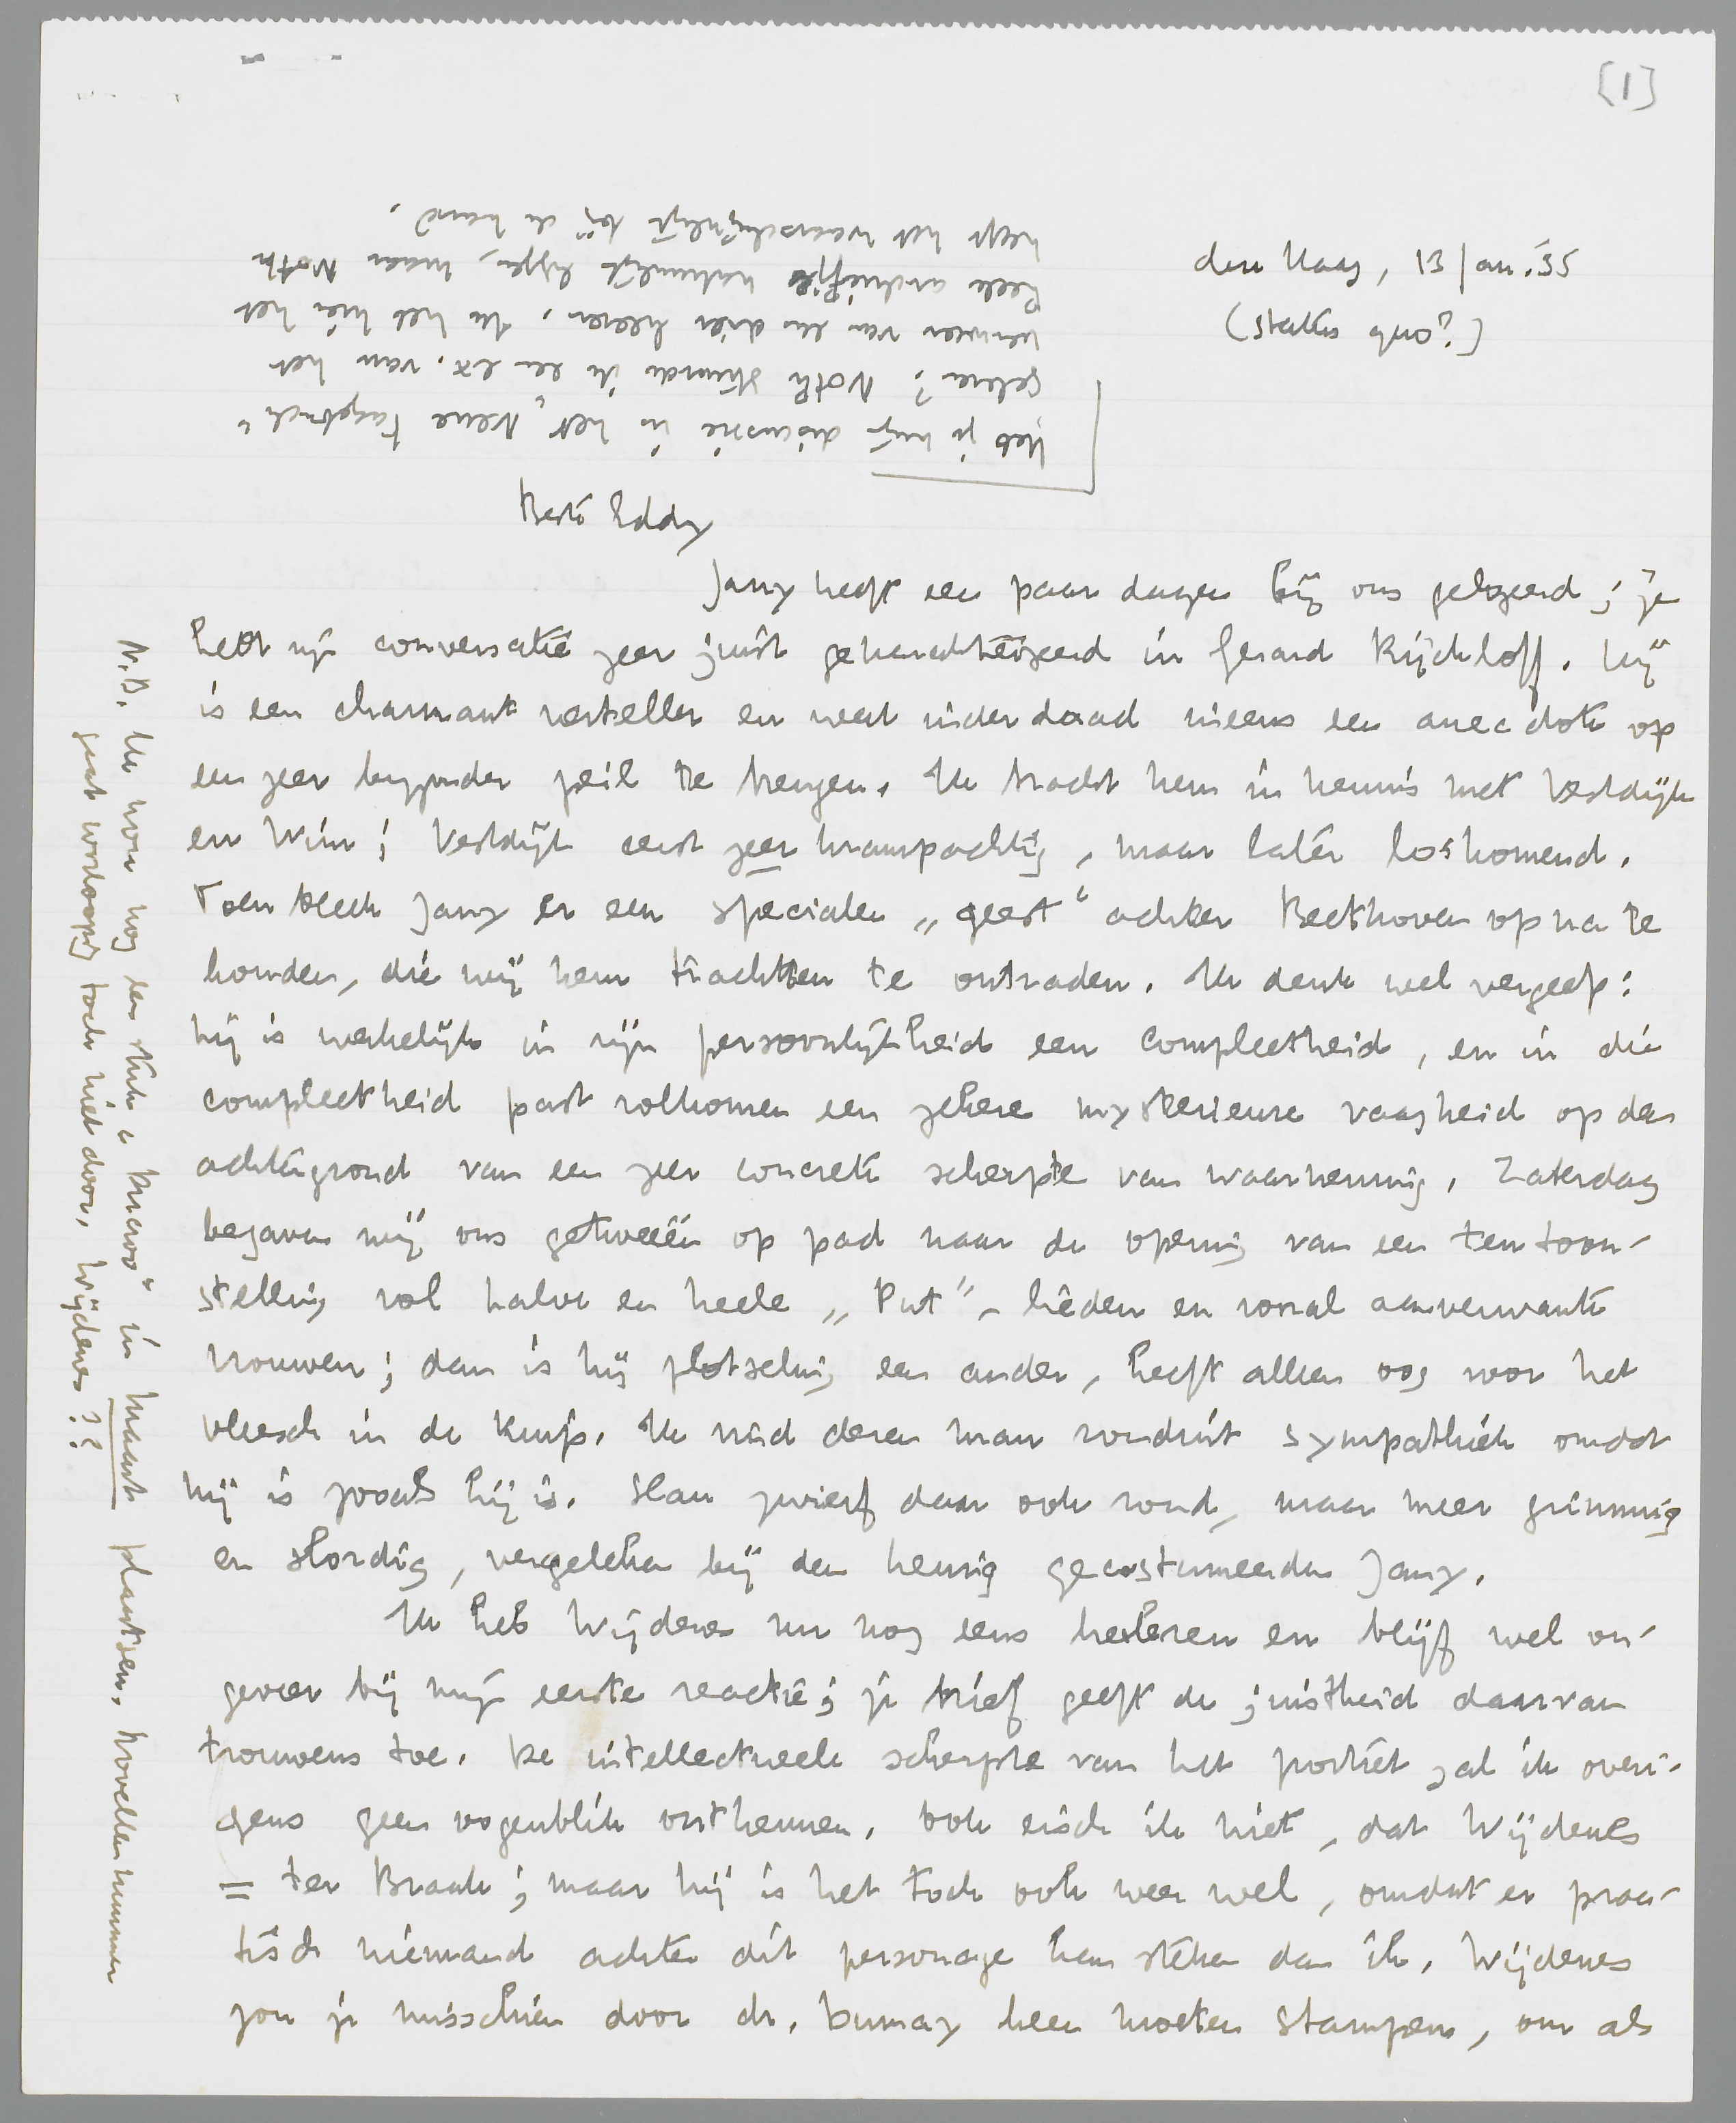 [1]
den Haag, 13 Jan. '35
(status quo?)
Heb je mijn discussie in het „Neue Tagebuch"
gelezen? Noth stuurde ik een ex. van het
verweer van en drie heeren. Ik heb hier het
heele archiefje natuurlijk liggen, maar Noth
heeft het waarschijnlijk bij de hand.
Beste Eddy
Jany heeft een paar dagen bij ons gelogeerd; je
hebt zijn conversatie zeer juist gekarakteriseerd in Gerard Rijckloff. Hij
is een charmant verteller en weet inderdaad ineens een anecdote op
een zeer bijzonder peil te brengen. Ik bracht hem in kennis met Vestdijk
en Wim; Vestdijk eerst zeer krampachtig, maar later loskomend.
Toen bleek Jany er een specialen „geest" achter Beethoven op na te
houden, die wij hem trachtten te ontraden. Ik denk wel vergeefs:
hij is werkelijk in zijn persoonlijkheid een compleetheid, en in die
compleetheid past volkomen een zekere mysterieuze vaagheid op den
achtergrond van een zeer concrete scherpte van waarneming. Zaterdag
begaven wij ons getweeën op pad naar de opening van een tentoon-
stelling vol halve en heele „Put"-lieden en vooral aanverwante
vrouwen; dan is hij plotseling een ander, heeft alleen oog voor het
vleesch in de kuip. Ik vind dezen man ronduit sympathiek omdat
hij is zooals hij is. Slau zwierf daar ook rond, maar meer grimmig
en slordig, vergeleken bij den keurig gecostumeerden Jany.
Ik heb Wijdenes nu nog eens herlezen en blijf wel on-
geveer bij mijn eerste reactie; je brief geeft de juistheid daarvan
trouwens toe. De intellectueele scherpte van het portret zal ik overi-
gens geen oogenblik ontkennen. Ook eisch ik niet, dat Wijdenes
= ter Braak; maar hij is het toch ook weer wel, omdat er prac-
tisch niemand achter dit personage kan steken dan ik. Wijdenes
zou je misschien door dr. Dumay heen moeten stampen, om als
N.B. Ik kon nog een stuk „Bravoo" in Maart plaatsen, novellennummer
gaat voorloopig toch niet door. Wijdenes??